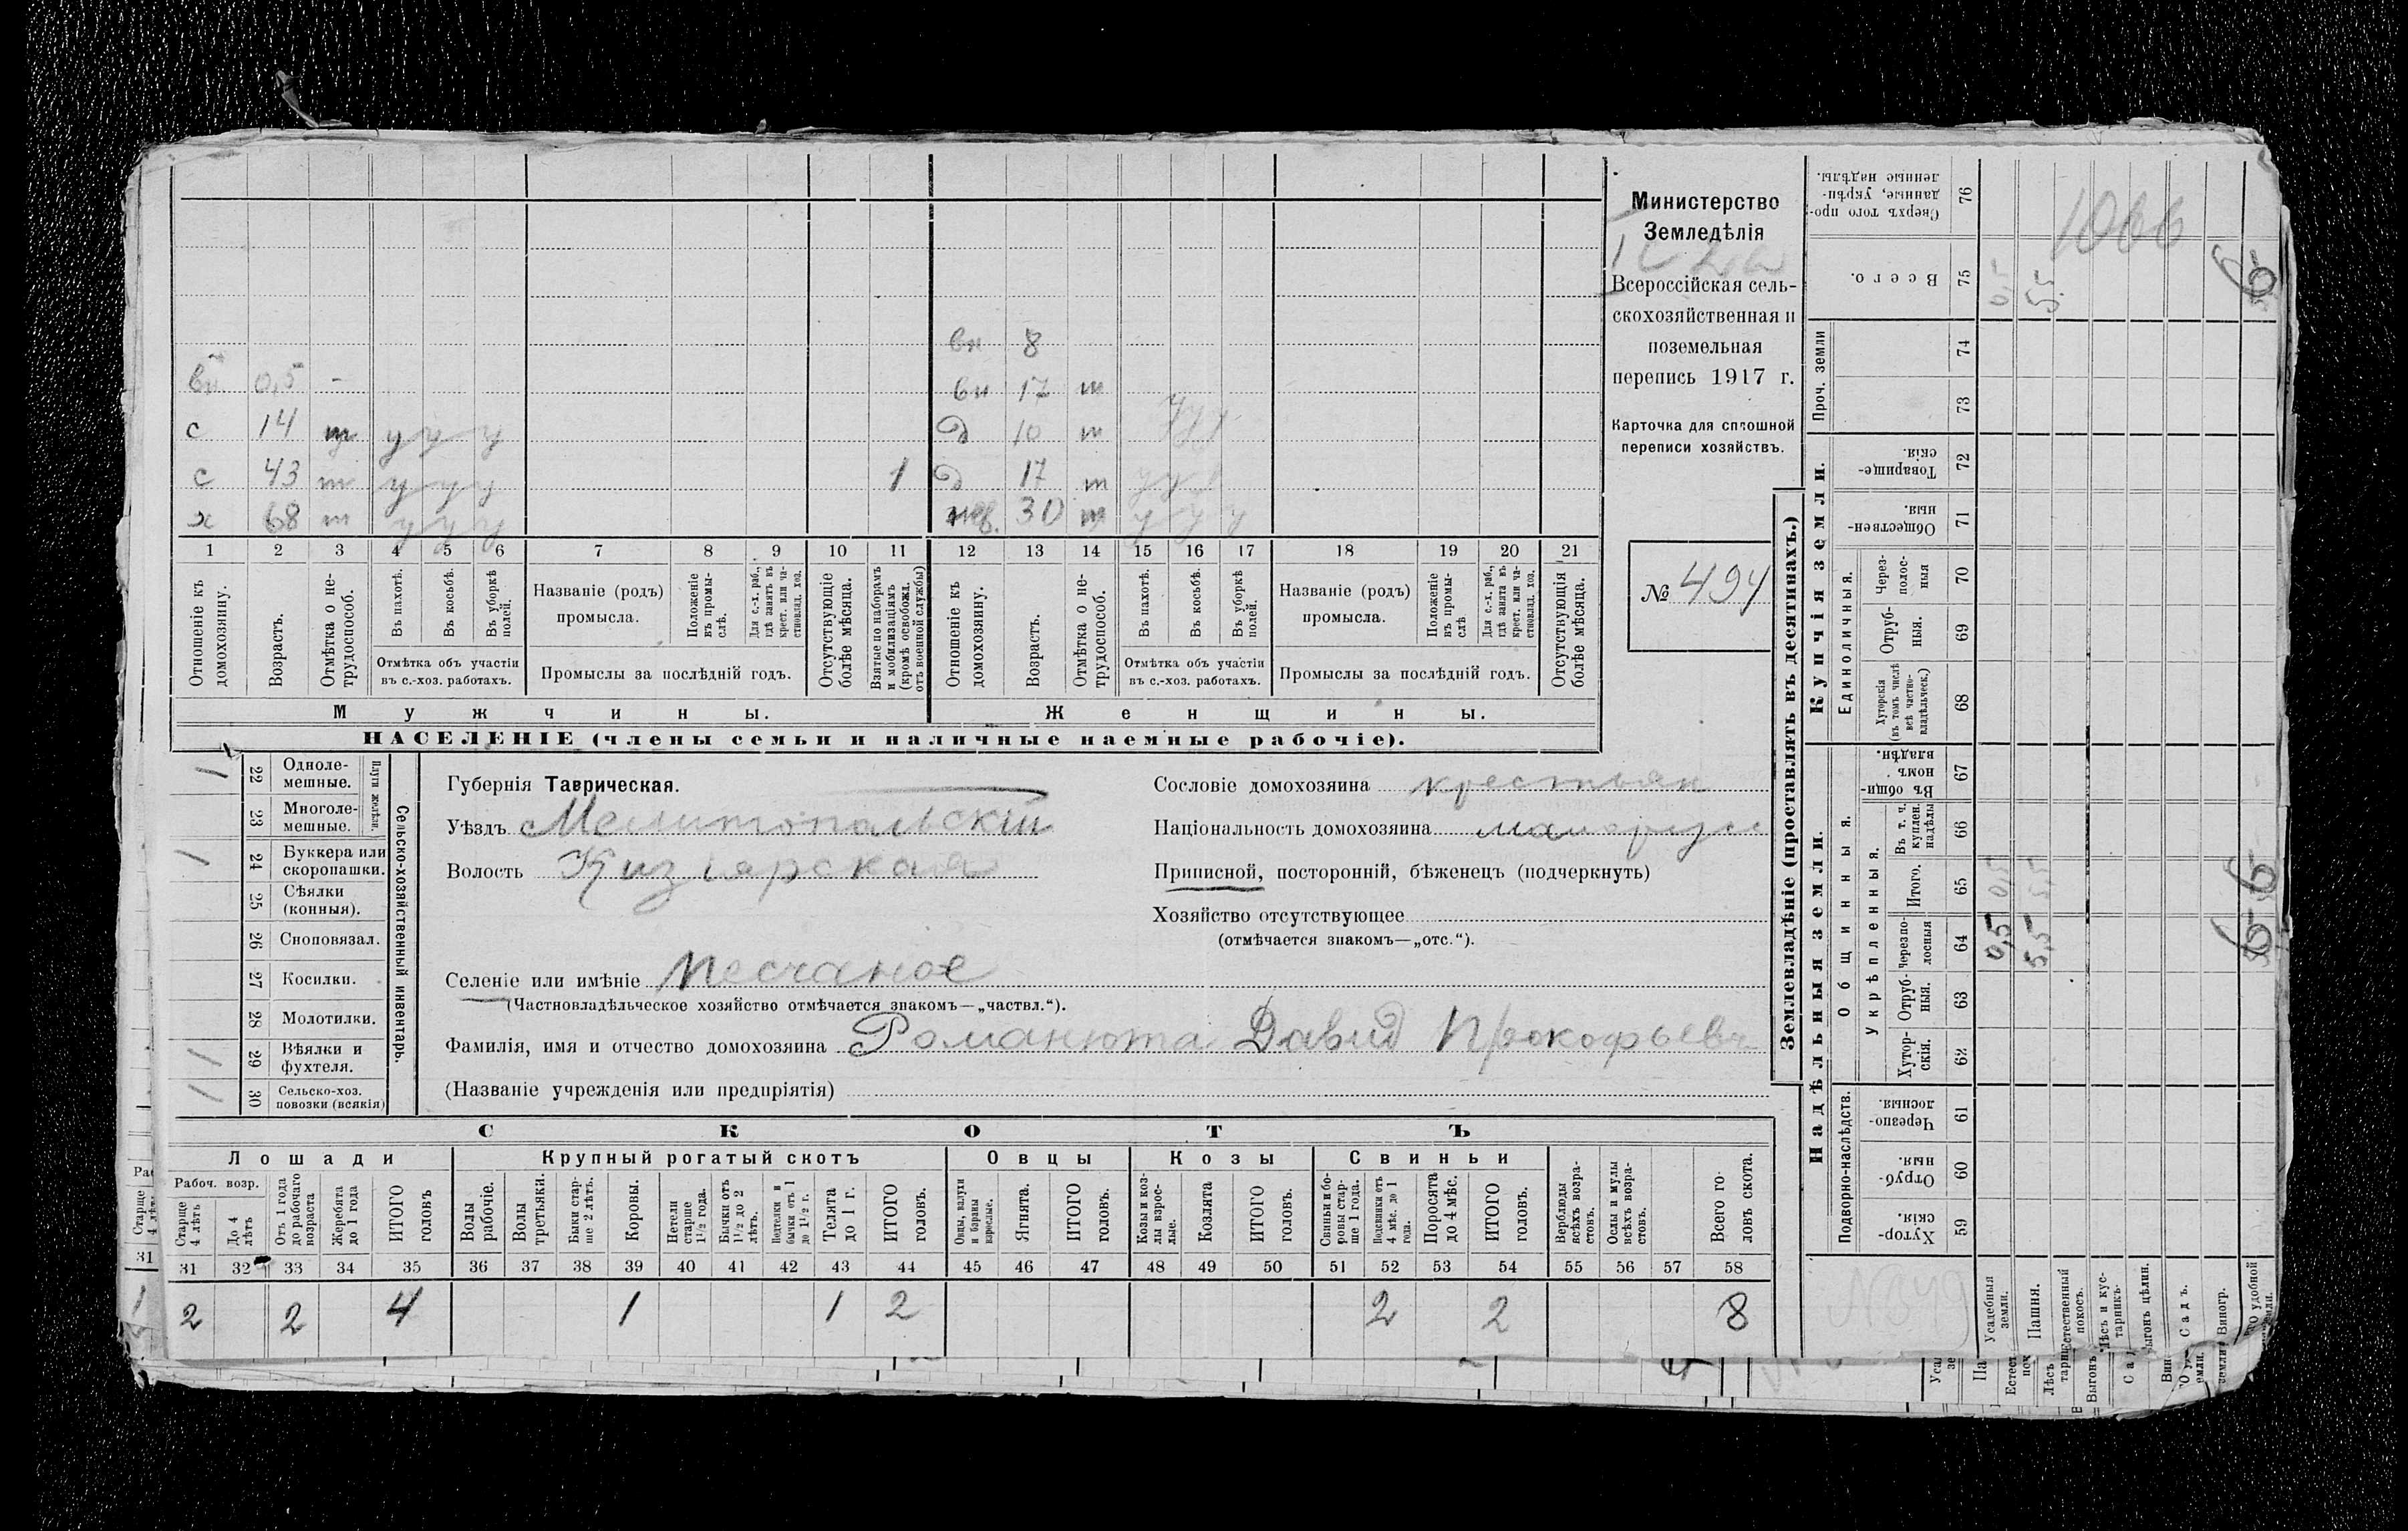 Министерство
Земледѣлія
Всероссійская сель-
скохозяйственная и
поземельная
перепись 1917 г.
Карточка для сплошной
переписи хозяйствъ.
№ 494
вн 8
вн 0,5 - вн 17 т
с 14 т у у у д 10 т у у у
с 43 т у у у 1 д 17 т у у
х 68 т у у у нев. 30 т у у у
1 2 3 4 5 6 7 8 9 10 11 12 13 14 15 16 17 18 19 20 21
Отношеніе къ домохозяину.
Возрастъ.
Отмѣтка о не-трудоспособ.
Въ пахотѣ.
Въ косьбѣ.
Въ уборкѣ полей.
Отмѣтка объ участіи
въ с.-хоз. работахъ.
Названіе (родъ)
промысла.
Положеніе въ промы-слѣ.
Для с.-х. раб., гдѣ занятъ въ крест. или ча-стновлад. хоз.
Промыслы за послѣдній годъ.
Отсутствующіе болѣе мѣсяца.
Взятые по наборамъ и мобилизаціямъ (кромѣ освобожд. отъ военной службы)
Отношеніе къ домохозяину.
Возрастъ.
Отмѣтка о не-трудоспособ.
Въ пахотѣ.
Въ косьбѣ.
Въ уборкѣ полей.
Отмѣтка объ участіи
въ с.-хоз. работахъ.
Названіе (родъ)
промысла.
Положеніе въ промы-слѣ
Для с.-х. раб., гдѣ занята въ крест. или ча-стновлад. хоз.
Промыслы за послѣдній годъ.
Отсутствующія болѣе мѣсяца.
Мужчины. Женщины.
НАСЕЛЕНІЕ (члены семьи и наличные наемные рабочіе).
Сельско-хозяйственный инвентарь.
Плуги желѣзн.
1 22 Одноле-мешные.
23 Многоле-мешные.
1 24 Буккера или скоропашки.
25 Сѣялки (конныя).
26 Сноповязал.
27 Косилки.
28 Молотилки.
1 29 Вѣялки и фухтеля.
1 30 Сельско-хоз. повозки (всякія)
Губернія Таврическая.
Уѣздъ Мелитопольскій
Волость Кизіярская
Селеніе или имѣніе Песчаное
(Частновладѣльческое хозяйство отмѣчается знакомъ—„частвл.“).
Фамилія, имя и отчество домохозяина Романюта Давид Прокофьевъ
(Названіе учрежденія или предпріятія)
Сословіе домохозяина крестьян
Національность домохозяина малорусс
Приписной, посторонній, бѣженецъ (подчеркнуть)
Хозяйство отсутствующее
(отмѣчается знакомъ—„отс.“).
СКОТЪ
Лошади Крупный рогатый скотъ Овцы Козы Свиньи
Рабоч. возр.
Старше 4 лѣтъ
До 4 лѣтъ
Отъ 1 года до рабочаго возраста
Жеребята до 1 года
ИТОГО головъ
Волы рабочіе.
Волы третьяки.
Быки стар-ше 2 лѣтъ.
Коровы.
Нетели старше 1½ года.
Бычки отъ 1½ до 2 лѣтъ.
Подтелки и бычки отъ 1 до 1½ г.
Телята до 1 г.
ИТОГО головъ.
Овцы, валухи и бараны взрослые.
Ягнята.
ИТОГО головъ.
Козы и коз-лы взрос-лые.
Козлята
ИТОГО головъ.
Свиньи и бо-ровы стар-ше 1 года.
Подсвинки отъ 4 мѣс. до 1 года.
Поросята до 4 мѣс.
ИТОГО головъ.
Верблюды всѣхъ возра-стовъ.
Ослы и мулы всѣхъ возра-стовъ.
Всего го-ловъ скота.
31 32 33 34 35 36 37 38 39 40 41 42 43 44 45 46 47 48 49 50 51 52 53 54 55 56 57 58
2 2 4 1 1 2 2 2 8
Землевладѣніе (проставлять въ десятинахъ.)
Надѣльныя земли. Купчія земли.
Подворно-наслѣдств.
Общинныя.
Укрѣпленныя.
Единоличныя.
Проч. земли
59 Хутор-скія.
60 Отруб-ныя.
61 Черезпо-лосныя.
62 Хутор-скія.
63 Отруб-ныя.
64 Черезпо-лосныя
65 Итого.
66 Въ т. ч. куплен. надѣлы
67 Въ общи-номъ владѣн.
68 Хуторскія (въ томъ числѣ всѣ частно-владѣльческ.)
69 Отруб-ныя.
70 Через-полос-ныя
71 Обществен-ныя.
72 Товарище-скія.
73
74
75 Всего.
76 Сверхъ того про-данные, укрѣп-ленные надѣлы.
Усадебныя земли. 0,5 0,5 0,5
Пашня. 5,5 5,5 5,5
Естественный покосъ.
Лѣсъ и кус-тарникъ.
Выгонъ цѣлин.
Садъ.
Виногр.
6 6 6
1066